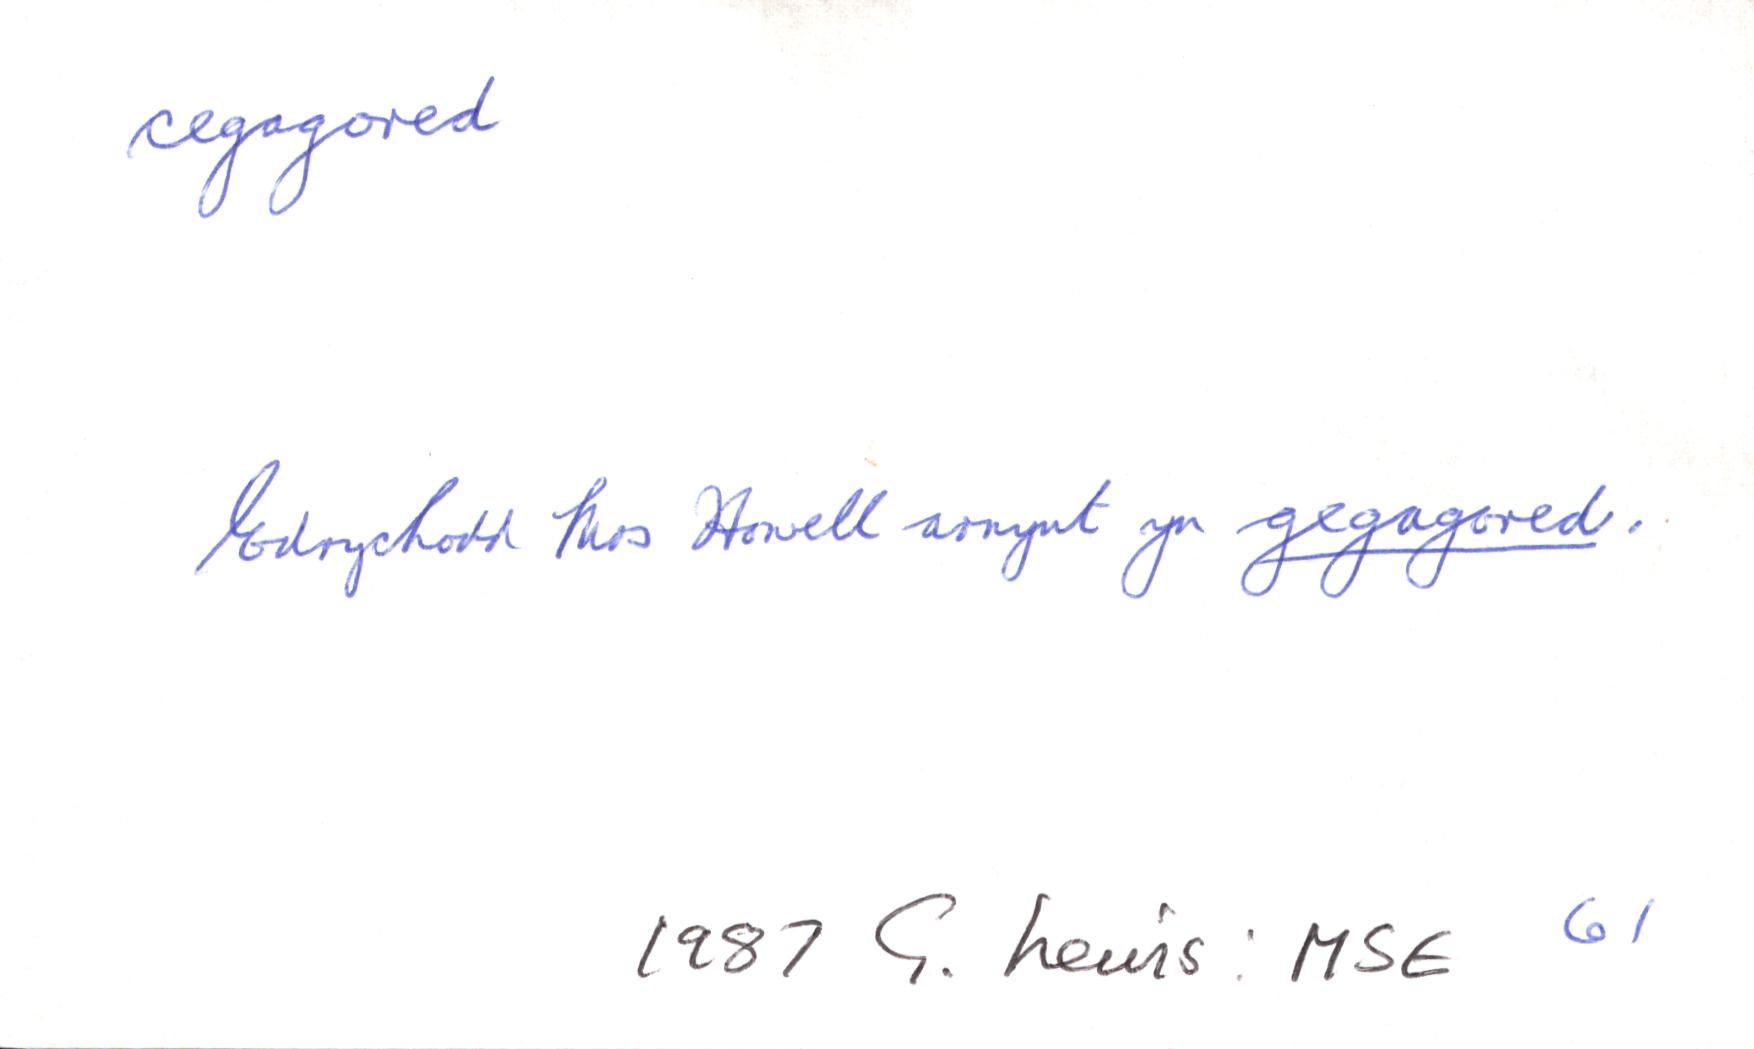 cegagored
Edrychodd Mrs Howell arnynt yn gegagored.
1987 G. Lewis: MSE 61